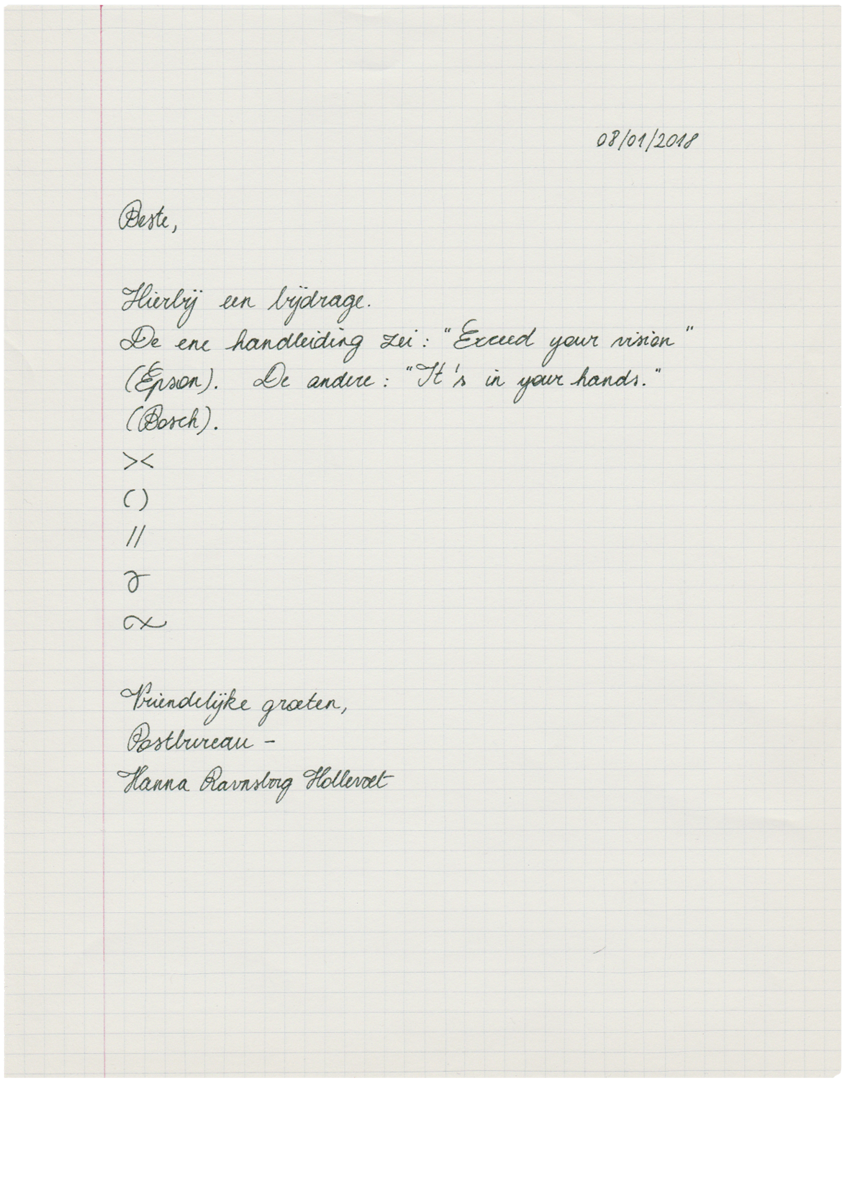 08/01/2018
Beste,
Hierbij een bijdrage.
De ene handleiding zei: "Exceed your vision"
(Epson). De andere: "It's in your hands."
(Bosch).
><
()
//
Vriendelijke groeten,
Postbureau -
Hanna Ravnsborg Hollevoet